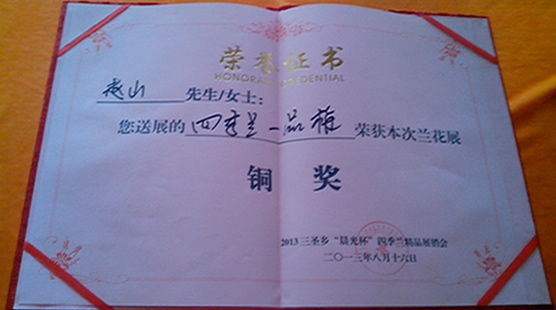 荣誉证书
HONORARY CREDENTIAL
越山 先生/女士:
您送展的 四季兰一品雄 荣获本次兰花展
铜奖
2013三圣乡“晨光杯”四季兰精品展销会
二〇一三年八月十六日